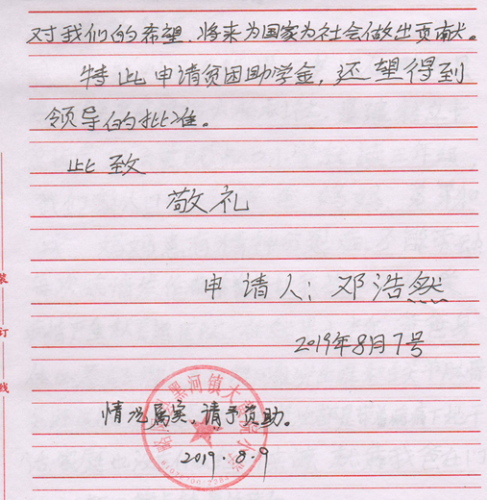 对我们的希望,将来为国家为社会做出贡献。
特此申请贫困助学金,还望得到
领导的批准。
此致
敬礼
申请人:邓浩然
2019年8月7号
黑河镇大
情况属实,请予资助。
2019.8.9
装
订
线